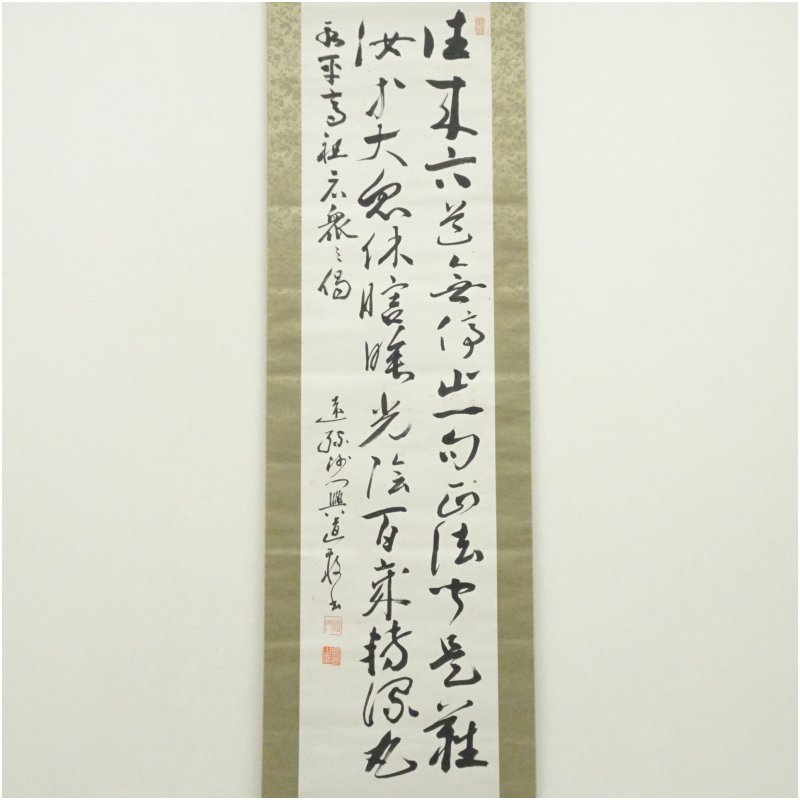 往来六道無停止一句正法聞是難
汝等大衆休瞎睡光陰百歳轉深丸
永平高祖示衆之偈
遠孫沙門興道敬書